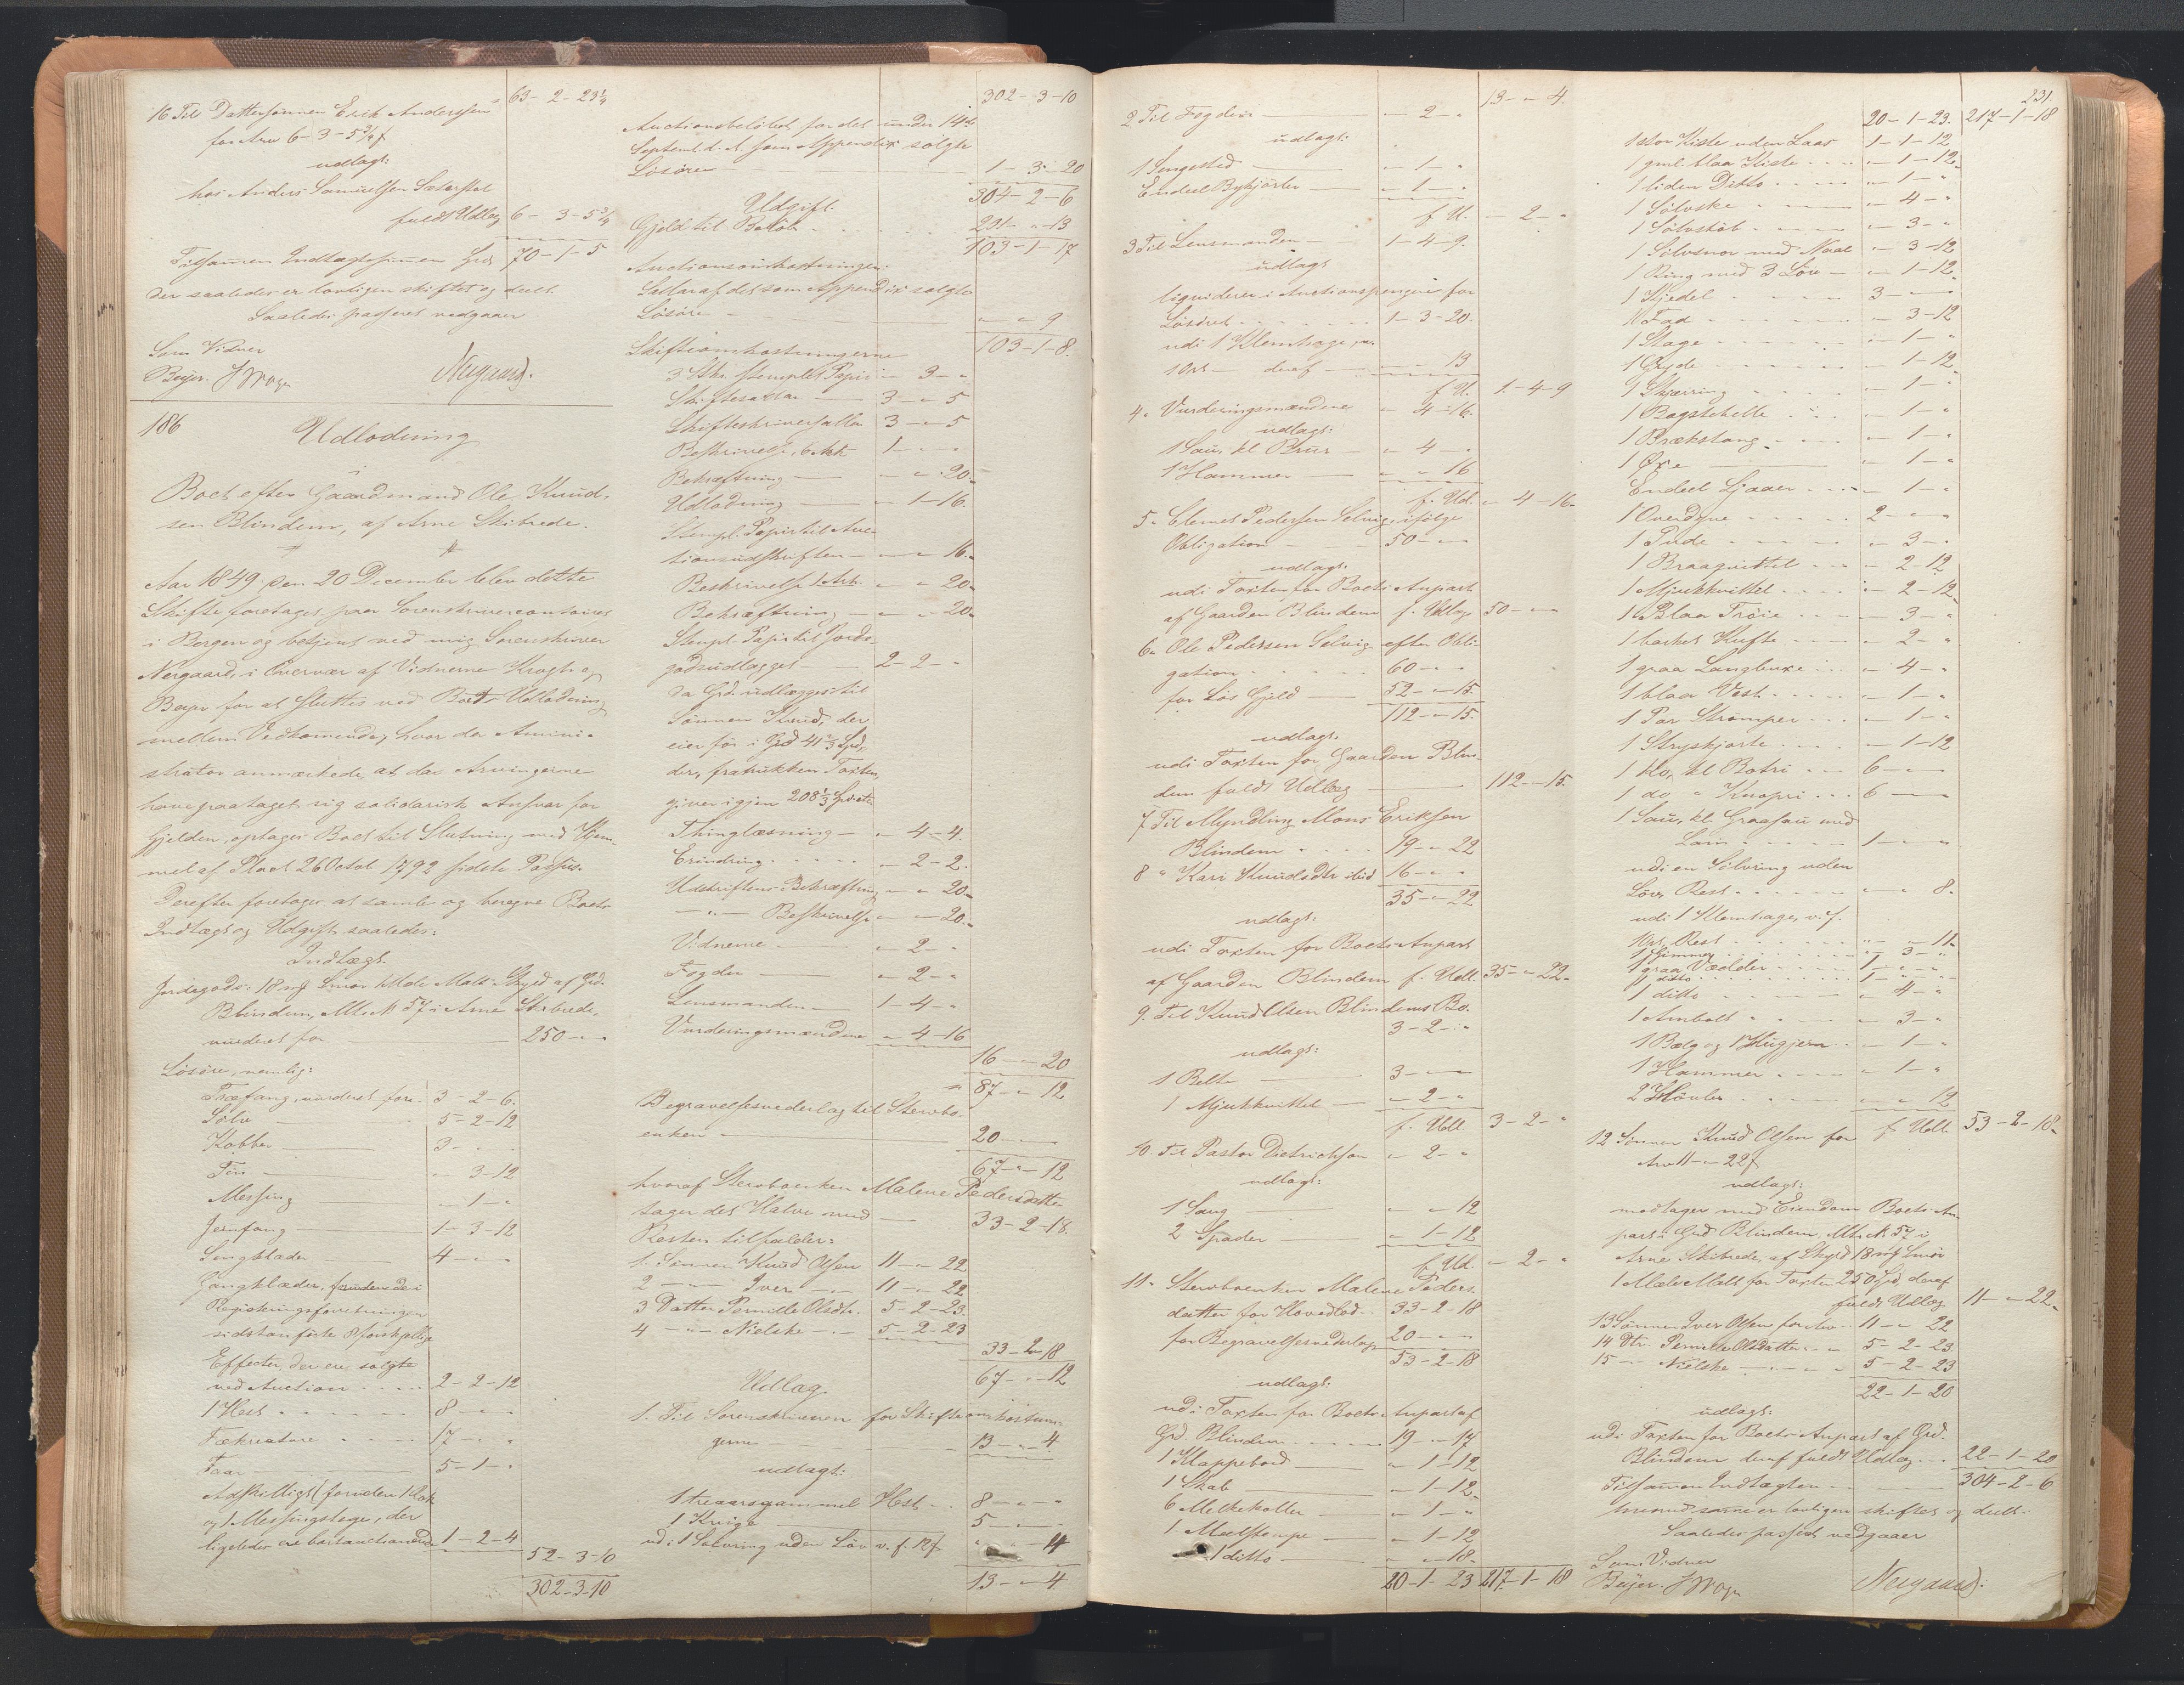 63- 2- 23¼
16 Til Dattersønnen Erik Anderssen
for Arv 6-3-5¾ f
udlagt:
hos Anders Samuelsen Sæterstøl
fuldt Udlæg 6- 3-5¾
Tilsammen Indtægtssummen Grd 70-1-5
der saaledes er lovligen skiftet og deelt.
Saaledes passeret vedgaaer
Som Vidner
Beyer.
Neegaard.
186
Udlodning
i
Boet efter Gaardmand Ole Knud-
sen Blindem, af Arne Skibrede.
Aar 1849 den 20 December blev dette
Skifte foretaget paa Sorenskrivercontoiret
i Bergen og betjent ved mig Sorenskriver
Neegaard, i Overvær af Vidnerne Krogh og
Beyer for at sluttes ved Boets Udlodning
mellem Vedkommende, hvor da Amini-
strator anmærkede, at da Arvingerne
have paataget sig solidarisk Ansvar for
Gjelden, optages Boet til Slutning med Hjem-
mel af Placat 26 Octob 1792 sidste Passus.
Derefter foretoges at samle og beregne Boets
Indtægt og Udgift saaledes:
Indtægt.
Jordegods: 18 mk Smør 1 Mele Malt Skyld af Grd.
Blindem, Mtr. N 57 i Arne Skibrede,
vurderet for 250 - -
Løsøre, nemlig:
Træfang, vurderet for 3-2-6.
Sølv 5-2-12
Kobber 3- -
Tin - 3-12
Messing - 1 -
Jernfang 1-3-12
Sengklæder 4 - -
Gangklæder, foruden de i
Registreringsforretningen
sidstanførte 8 forskjellige
Effecter, der ere solgte
ved Auction 2-2-12
1 Hest 8 - -
Fækreature 17 - -
Faar 5-1-
Adskilligt (foruden 1 Lok
og 1 Messingstage, der
ligeledes ere bortauctionerede 1-2-4
52-3-10
302-3-10
302-3-10
Auctionsbeløbet for det under 14de
Septemb. d. A. som Appendix solgte
Løsøre 1-3-20
304-2-6
Udgift.
Gjeld til Beløb 201 - - 13
103-1-17
Auctionsomkostninger.
Salær af det som Appendix solgte
Løsøre - - 9
103-1-8.
Skifteomkostningerne
3 Ark stemplet Papir - 3 -
Skiftesalær 3 - 5
Skifteskriversalær 3 - 5
Beskrivelse, 6 Ark 1 - -
Bekræftning - - 20
Udlodning - 1-16
Stempl. Papir til Auc-
tionsudskriften - - 16
Beskrivelse 1 Ark - - 20
Bekræftning - - 20
Stempl. Papir til Jorde-
godsudlægget 2-2-
da Grd. udlægges til
Sønnen Knud, der
eier før i Grd 41⅔ Spd,
der, fratrukken Taxten,
giver igjen 208⅓ Spd
Thinglæsning - 4-4
Erindring - 2-2
Udskriftens Bekræftning - - 20
- " - Beskrivelse - - 20
Vidnerne - 2 -
Fogden - 2 -
Lensmanden 1-4-
Vurderingsmændene - 4-16
16 - - 20
87 - - 12
Begravelsesvederlag til Stervbo-
enken 20 - -
67 - - 12
hvoraf Stervboenken Malene Pedersdatter
tager det Halve med 33-2-18.
Resten tilfalder:
1. Sønnen Knud Olsen 11 - - 22
2 - Iver - 11 - - 22
3 Datter Pernille Olsdtr. 5-2-23
4 - " - Nielske - " - 5-2-23
33-2-18
67 - - 12
Udlæg.
1. Til Sorenskriveren for Skifteomkostnin-
gerne 13 - - 4
udlagt:
1 treaarsgammel Hest 8 - -
1 Kvige 5 - -
udi 1 Sølvring uden Løv v. f. 12 f - - 4
13 - - 4
13 - - 4.
2 Til Fogden - 2 -
udlagt:
1 Sengested - 1 -
Endeel Bykjørler - 1 -
f. U. - 2 -
3 Til Lensmanden 1-4-9.
udlagt
liquiderer i Auctionspenger for
Løsøret 1-3-20.
udi 1 Klemhage, v.
1 Ort deraf - - 13
f. U. 1-4-9
4 Vurderingsmændene - 4-16.
udlagt:
1 Sau, kl. Bruur - 4 -
1 Hammer - - 16
f. Udl. - 4-16
5 Clemet Pedersen Selvig ifølge
Obligation 50 - -
udlagt:
udi Taxten for Boets Anpart
af Gaarden Blindem f. Udlæg 50 - -
6 Ole Pedersen Selvig efter Obli-
gation 60 - -
for Løs Gjeld 52 - - 15.
112 - - 15.
udlagt:
udi Taxten for Gaarden Blin-
dem fuldt Udlæg 112 - - 15.
7 Til Myndling Mons Eriksen
Blindem 19 - - 22
8 " Kari Knudsdtr ibid 16 - -
35 - - 22
udlagt:
udi Taxten for Boets Anpart
af Gaarden Blindem f. Udl. 35 - - 22
9. Til Knud Olsen Blindems Bo.
3-2-
udlagt:
1 Belte 3 - -
1 Mjukkvittel - 2 -
f. Udl. 3-2-
10. Til Pastor Dietrichson - 2 -
udlagt:
1 Saug - - 12
2 Spader - 1-12
f. Ud. - 2 -
11. Stervboenken Malene Peders-
datter for Hovedlod 33-2-18
for Begravelsesvederlag 20 - -
53-2-18
udlagt:
udi Taxten for Boets Anpart af
Grd. Blindem 19 - - 14
1 Klappebord - 1-12
1 Skab - 1-12
6 Melkekoller - 1 -
1 - 1-12
1 ditto - - 18
20-1-23 217-1-18
231.
20-1-23. 217-1-18
1 stor Kiste uden Laas 1-1-12
1 gml. blaa Kiste - 1-12
1 liden Ditto - 1 -
1 Sølvske - 4 -
1 Sølvstøb - 3 -
1 Sølvsnor med Naal - 3-12
1 Ring med 3 Løv - 1-12
1 Kjedel 3 - -
11 Fad - 3-12
1 Stage - 1 -
1 Gryde - 1-12
1 Skjæring - 1 -
1 Bagstehelle - 1 -
1 Brækstang - 1 -
1 Øxe - 1 -
Endeel Ljaaer - 1 -
1 Overdyne 2 - -
1 Pude - 3 -
1 Braagvittel - 2-12
1 Mjukkvittel - 2-12
1 Blaa Trøie - 3 -
1 barket Kufte - 2 -
1 graa Langbuxe - 4 -
1 blaa Vest - 1 -
1 Par Strømper - 1 -
1 Stryskjorte - 1-12
1 Ko, kl. Botri 6 - -
1 do " Knopri 6 - -
1 Sau, kl. Graasau med
Lam 1 - -
udi en Sølvring uden
Løv, Rest - - 8.
udi 1 Klemhage, v. f.
1 Ort, Rest - - 11
1 Gimmer - 3 -
1 graa Vædder 1 - -
1 ditto 1 - -
1 ditto - 4 -
1 Ambolt - 3 -
1 Bælg og 1 Hugjern - 1 -
1 Hammer - 1 -
2 Høvler - - 12
f. Udl. 53-2-18
12 Sønnen Knud Olsen for
Arv 11 - - 22 f
udlagt:
modtager med Eiendom Boets An-
part i Grd Blindem, Mtr. N 57 i
Arne Skibrede, af Skyld 18 mk Smør
1 Mæle Malt for Taxten 250 Spd, deraf
fuldt Udlæg 11 - - 22
13 Sønnen Iver Olsen for Arv 11 - - 22
14 Dtr. Pernille Olsdatter - " - 5-2-23
15 - " - Nielske - " - 5-2-23
22-1-20
udlagt:
udi Taxten for Boets Anpart af Grd.
Blindem deraf fuldt Udlæg 22-1-20
Tilsammen Indtægten 304-2-6
hvormed samme er lovligen skiftet og deelt.
Saaledes passeret vedgaaer
Som Vidner
Beyer.
Neegaard.